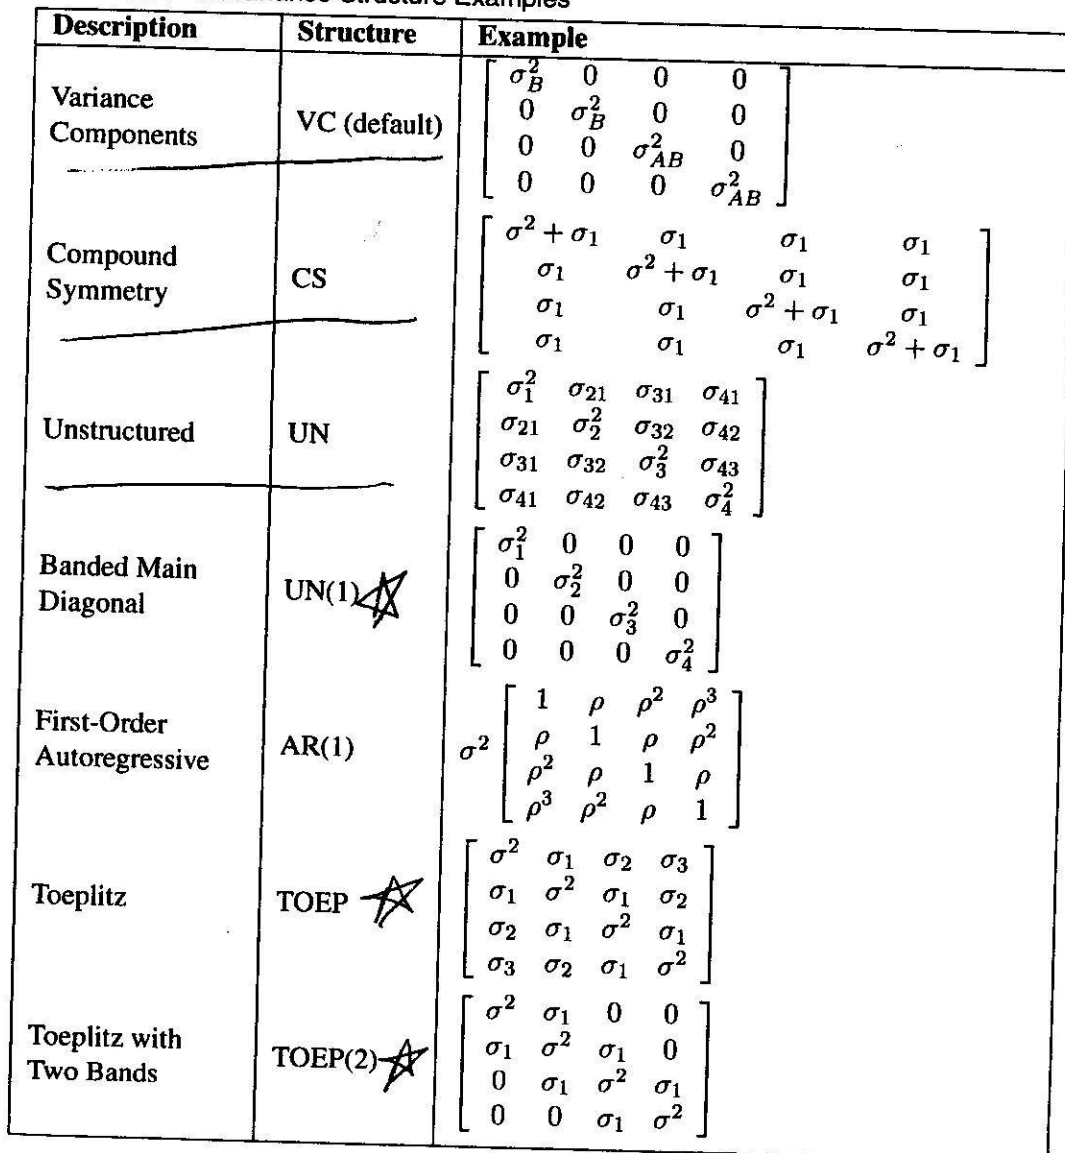 Structure Examples
Description Structure Example
Variance
Components
VC (default)
[ σ_B^2 0 0 0 ]
[ 0 σ_B^2 0 0 ]
[ 0 0 σ_AB^2 0 ]
[ 0 0 0 σ_AB^2 ]
Compound
Symmetry
CS
[ σ^2 + σ_1 σ_1 σ_1 σ_1 ]
[ σ_1 σ^2 + σ_1 σ_1 σ_1 ]
[ σ_1 σ_1 σ^2 + σ_1 σ_1 ]
[ σ_1 σ_1 σ_1 σ^2 + σ_1 ]
Unstructured
UN
[ σ_1^2 σ_21 σ_31 σ_41 ]
[ σ_21 σ_2^2 σ_32 σ_42 ]
[ σ_31 σ_32 σ_3^2 σ_43 ]
[ σ_41 σ_42 σ_43 σ_4^2 ]
Banded Main
Diagonal
UN(1)
[ σ_1^2 0 0 0 ]
[ 0 σ_2^2 0 0 ]
[ 0 0 σ_3^2 0 ]
[ 0 0 0 σ_4^2 ]
First-Order
Autoregressive
AR(1)
σ^2
[ 1 ρ ρ^2 ρ^3 ]
[ ρ 1 ρ ρ^2 ]
[ ρ^2 ρ 1 ρ ]
[ ρ^3 ρ^2 ρ 1 ]
Toeplitz
TOEP
[ σ^2 σ_1 σ_2 σ_3 ]
[ σ_1 σ^2 σ_1 σ_2 ]
[ σ_2 σ_1 σ^2 σ_1 ]
[ σ_3 σ_2 σ_1 σ^2 ]
Toeplitz with
Two Bands
TOEP(2)
[ σ^2 σ_1 0 0 ]
[ σ_1 σ^2 σ_1 0 ]
[ 0 σ_1 σ^2 σ_1 ]
[ 0 0 σ_1 σ^2 ]